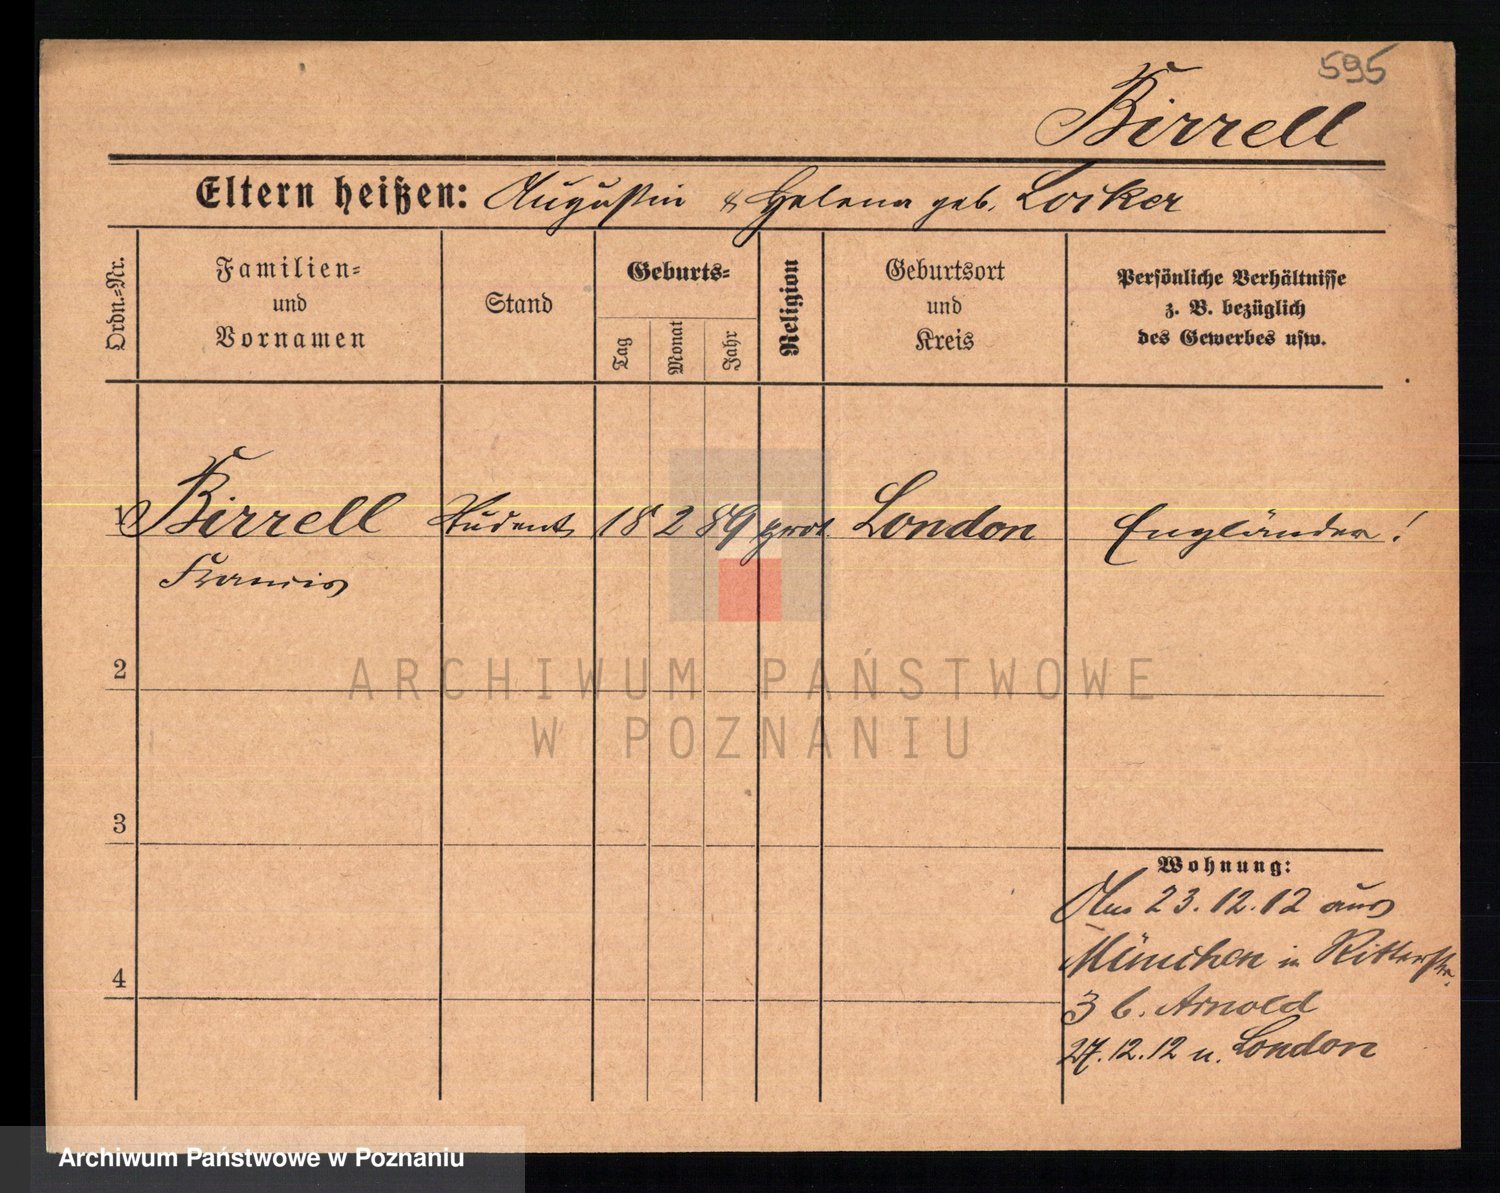 595
Birrell
Eltern heißen: Augustin & Helena geb. Locker
Ordn.-Nr.
Familien-
und
Vornamen
Stand
Geburts-
Tag
Monat
Jahr
Religion
Geburtsort
und
Kreis
Persönliche Verhältnisse
z. B. bezüglich
des Gewerbes usw.
1 Birrell Student 18 2 89 prot. London Engländer!
Francis
2
3
4
Wohnung:
Am 23.12.12 aus
München in Ritterstr.
3 b. Arnold
27.12.12 n. London
ARCHIWUM PAŃSTWOWE
W POZNANIU
Archiwum Państwowe w Poznaniu